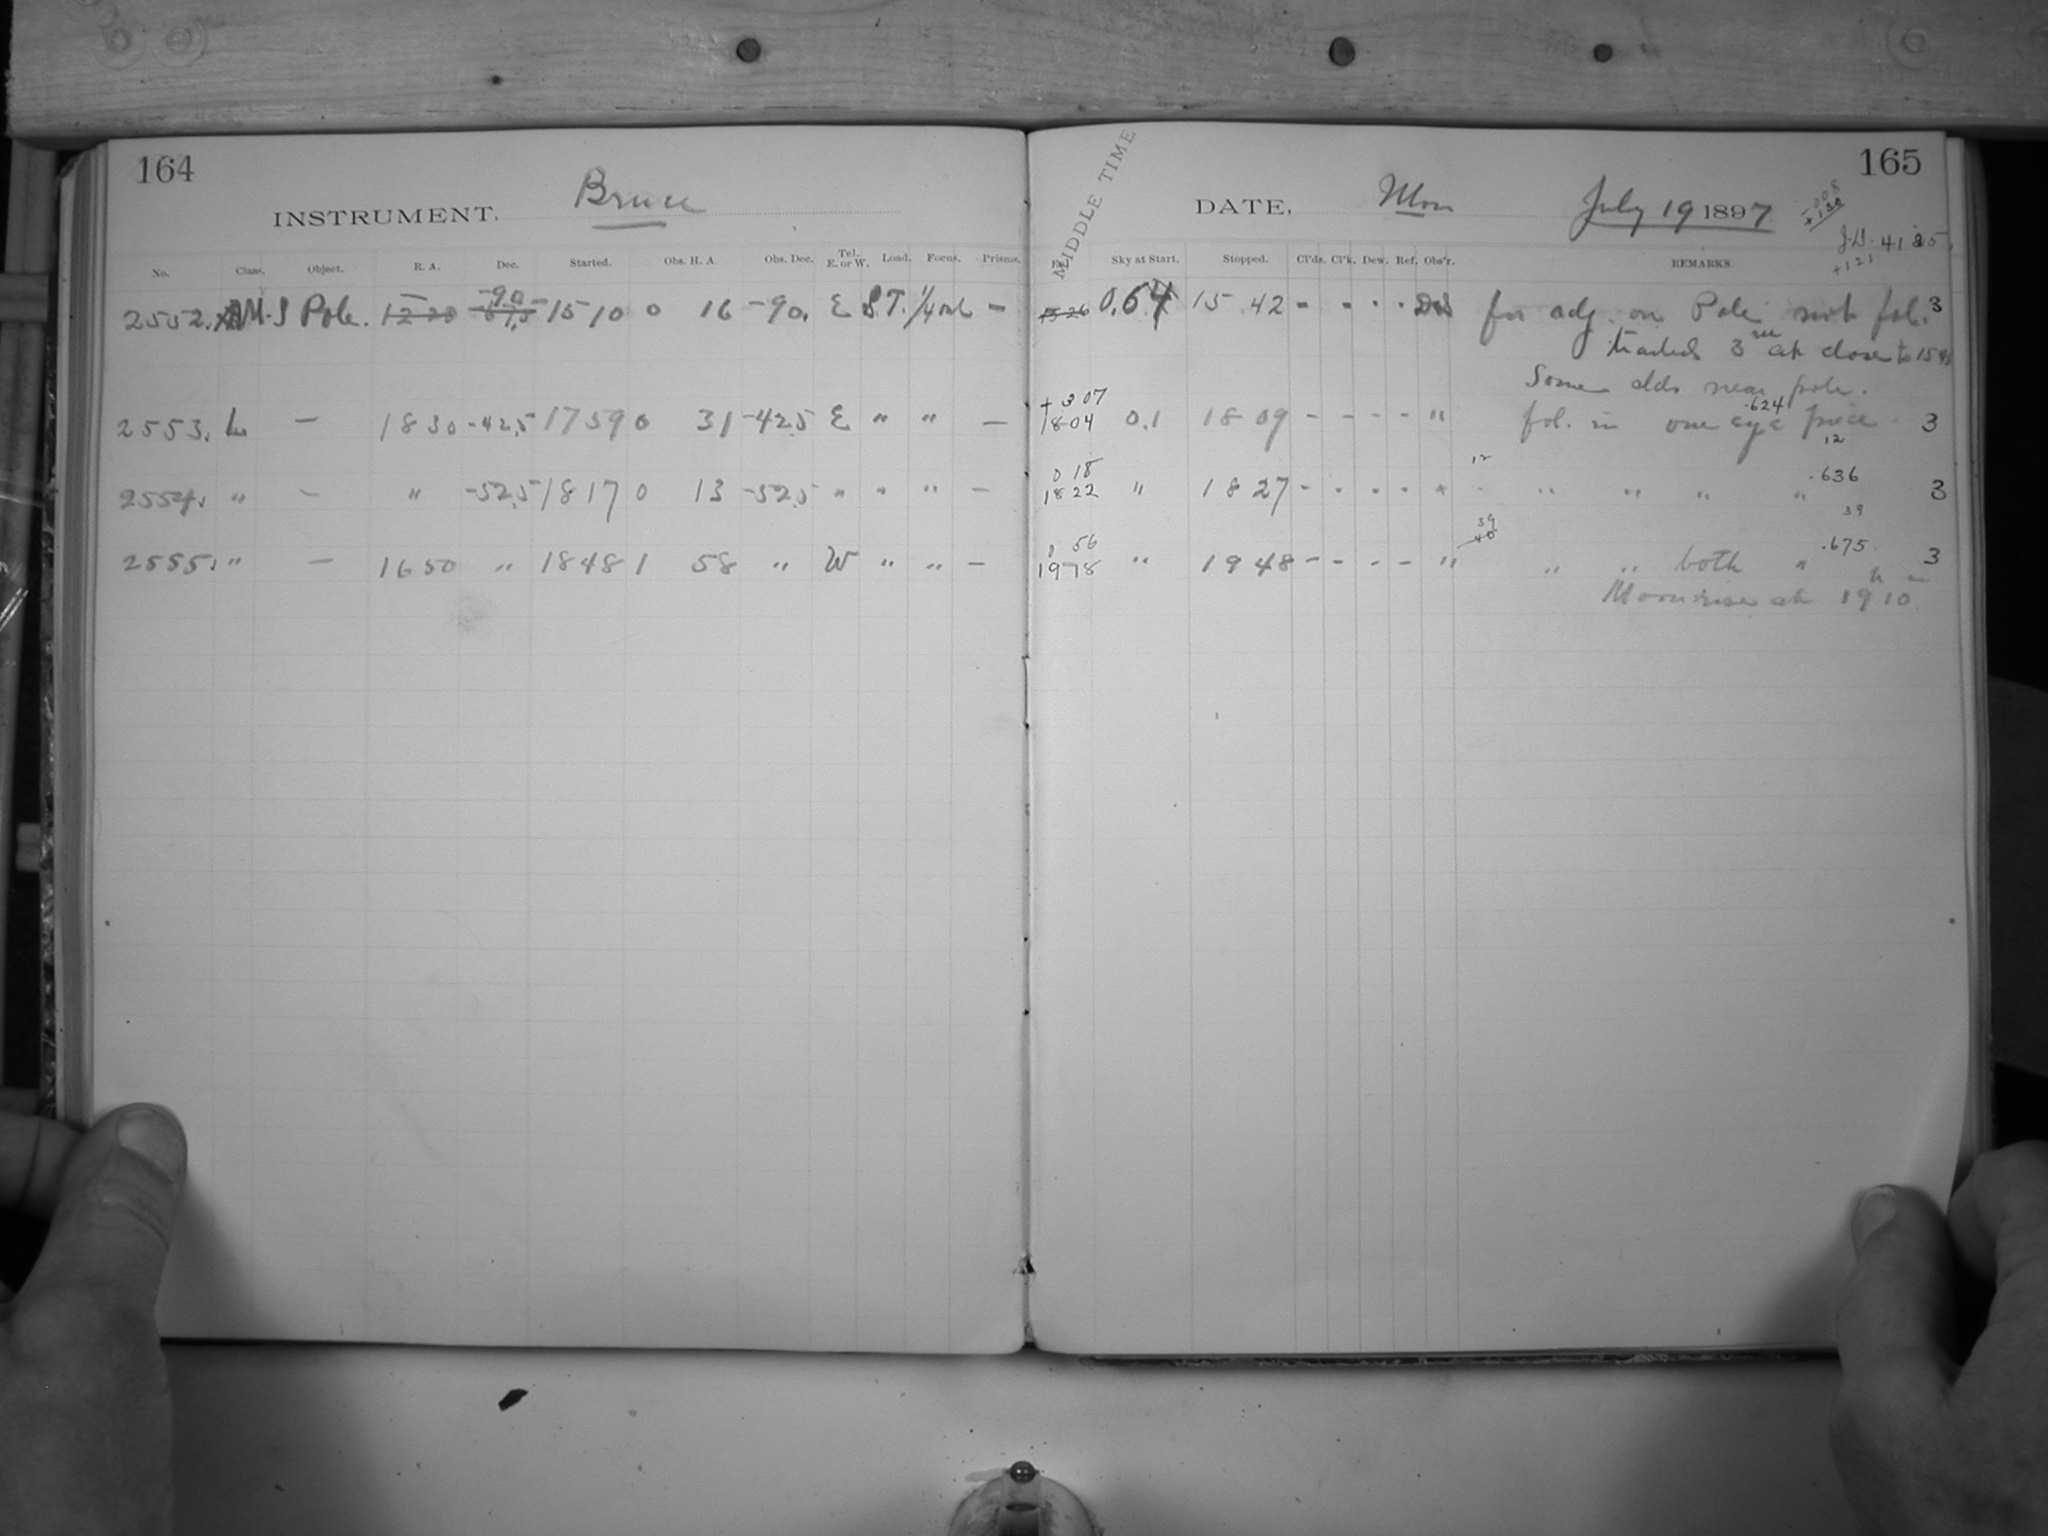 164
INSTRUMENT, Bruce
No. Class. Object. R. A. Dec. Started. Obs. H. A. Obs. Dec. Tel. E. or W. Load. Focus. Prisms.
-90
2552. M.S Pole. 12 20 -67.5 15 10 0 16 -90. E S.T. —
2553. L — 18 30 -42.5 17 59 0 31 -42.5 E " " —
2554. " — " -52.5 18 17 0 13 -52.5 " " " —
2555. " — 16 50 " 18 48 1 58 " W " " —
165
MIDDLE TIME
DATE, Mon July 19 1897
J.D. 41
+121
Ex. Sky at Start. Stopped. Cl'ds. Cl'k. Dew. Ref. Obs'r. REMARKS.
15 26 0.64 15 42 - - - - for adj. on Pole not fol. 3
trailed 3 m at close to 15 45
Some clds near pole.
+ 3 07
18 04 0.1 18 09 - - - - " fol. in one eye piece .624 3
12
0 18
18 22 " 18 27 - - - - 12 " " " " .636 3
39
0 56
" 19 48 - - - - " 39 40 " " both " .675 3
Moonrise at 19 h 10 m